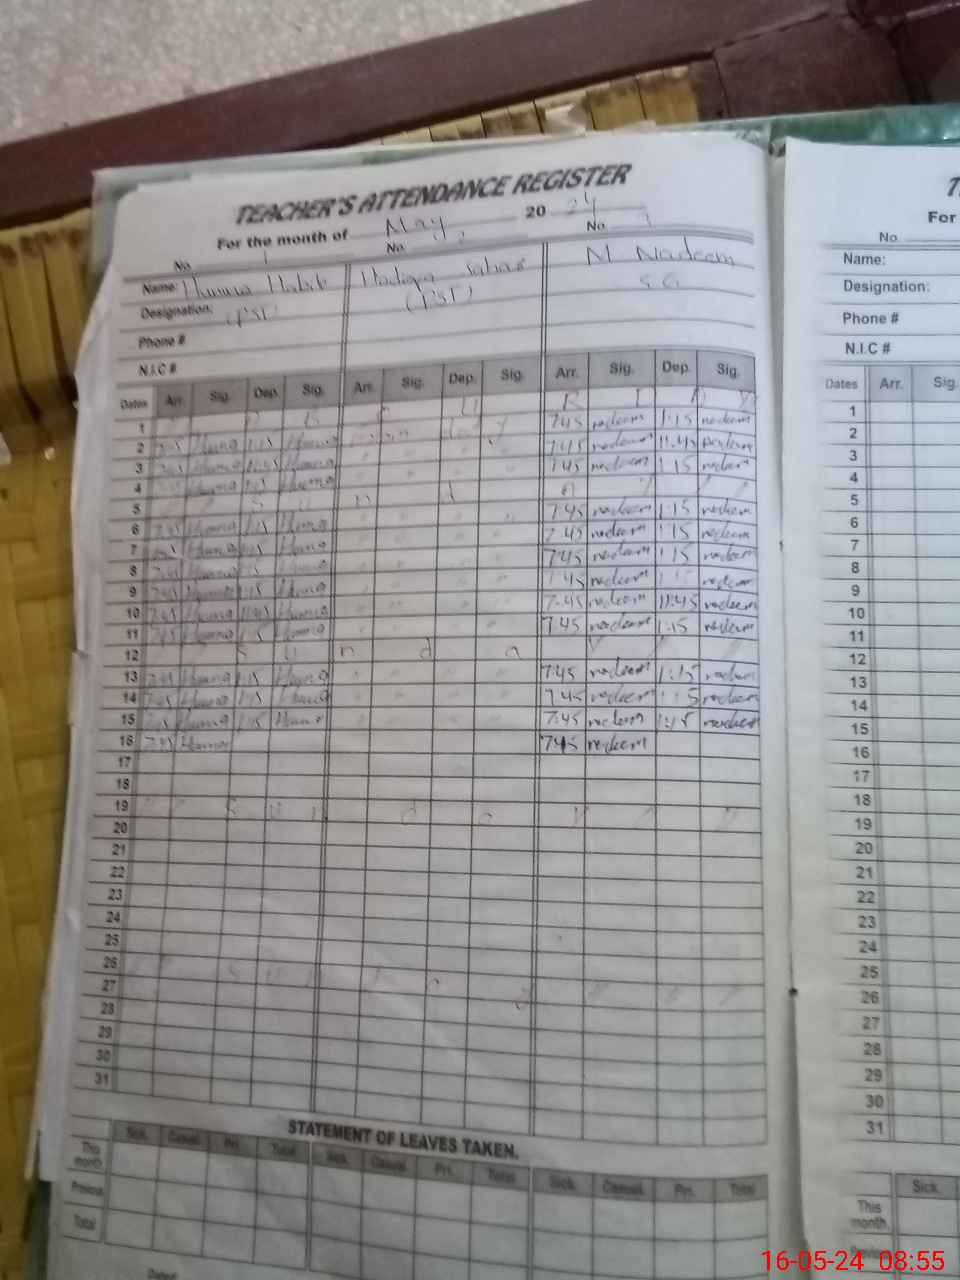 TEACHER'S ATTENDANCE REGISTER
For the month of May 2024
No. 1 No. 2 No. 3
Name: Humna Habib M Nadeem
Designation: (PST) (PST) SG
Phone #
N.I.C #
Dates Arr. Sig. Dep. Sig. Arr. Sig. Dep. Sig. Arr. Sig. Dep. Sig.
1
2 Humna 1:15 Humna 7:45 nadeem 1:15 nadeem
3 Humna 11:45 Humna 7:45 nadeem 11:45 nadeem
4 Humna Humna 7:45 nadeem 1:15 nadeem
5 S u n d a y
6 7:45 Humna 1:15 Humna 7:45 nadeem 1:15 nadeem
7 Humna 1:15 Humna 7:45 nadeem 1:15 nadeem
8 7:45 Humna 1:15 Humna 7:45 nadeem 1:15 nadeem
9 7:45 Humna 1:15 Humna 7:45 nadeem 1:15 nadeem
10 7:45 Humna 11:45 Humna 7:45 nadeem 11:45 nadeem
11 7:45 Humna 1:15 Humna 7:45 nadeem 1:15 nadeem
12 S u n d a y
13 7:45 Humna 1:15 Humna 7:45 nadeem 1:15 nadeem
14 7:45 Humna 1:15 Humna 7:45 nadeem 1:15 nadeem
15 7:45 Humna 1:15 Humna 7:45 nadeem 1:15 nadeem
16 7:45 Humna 7:45 nadeem
17
18
19 S u n d a y
20
21
22
23
24
25
26 S u n d a y
27
28
29
30
31
STATEMENT OF LEAVES TAKEN.
Sick. Casual. Pri. Total Sick. Casual. Pri. Total Sick. Casual. Pri. Total
This month
Previous
Total
For
No.
Name:
Designation:
Phone #
N.I.C #
Dates Arr. Sig.
1
2
3
4
5
6
7
8
9
10
11
12
13
14
15
16
17
18
19
20
21
22
23
24
25
26
27
28
29
30
31
Sick.
This month
Previous
16-05-24 08:55